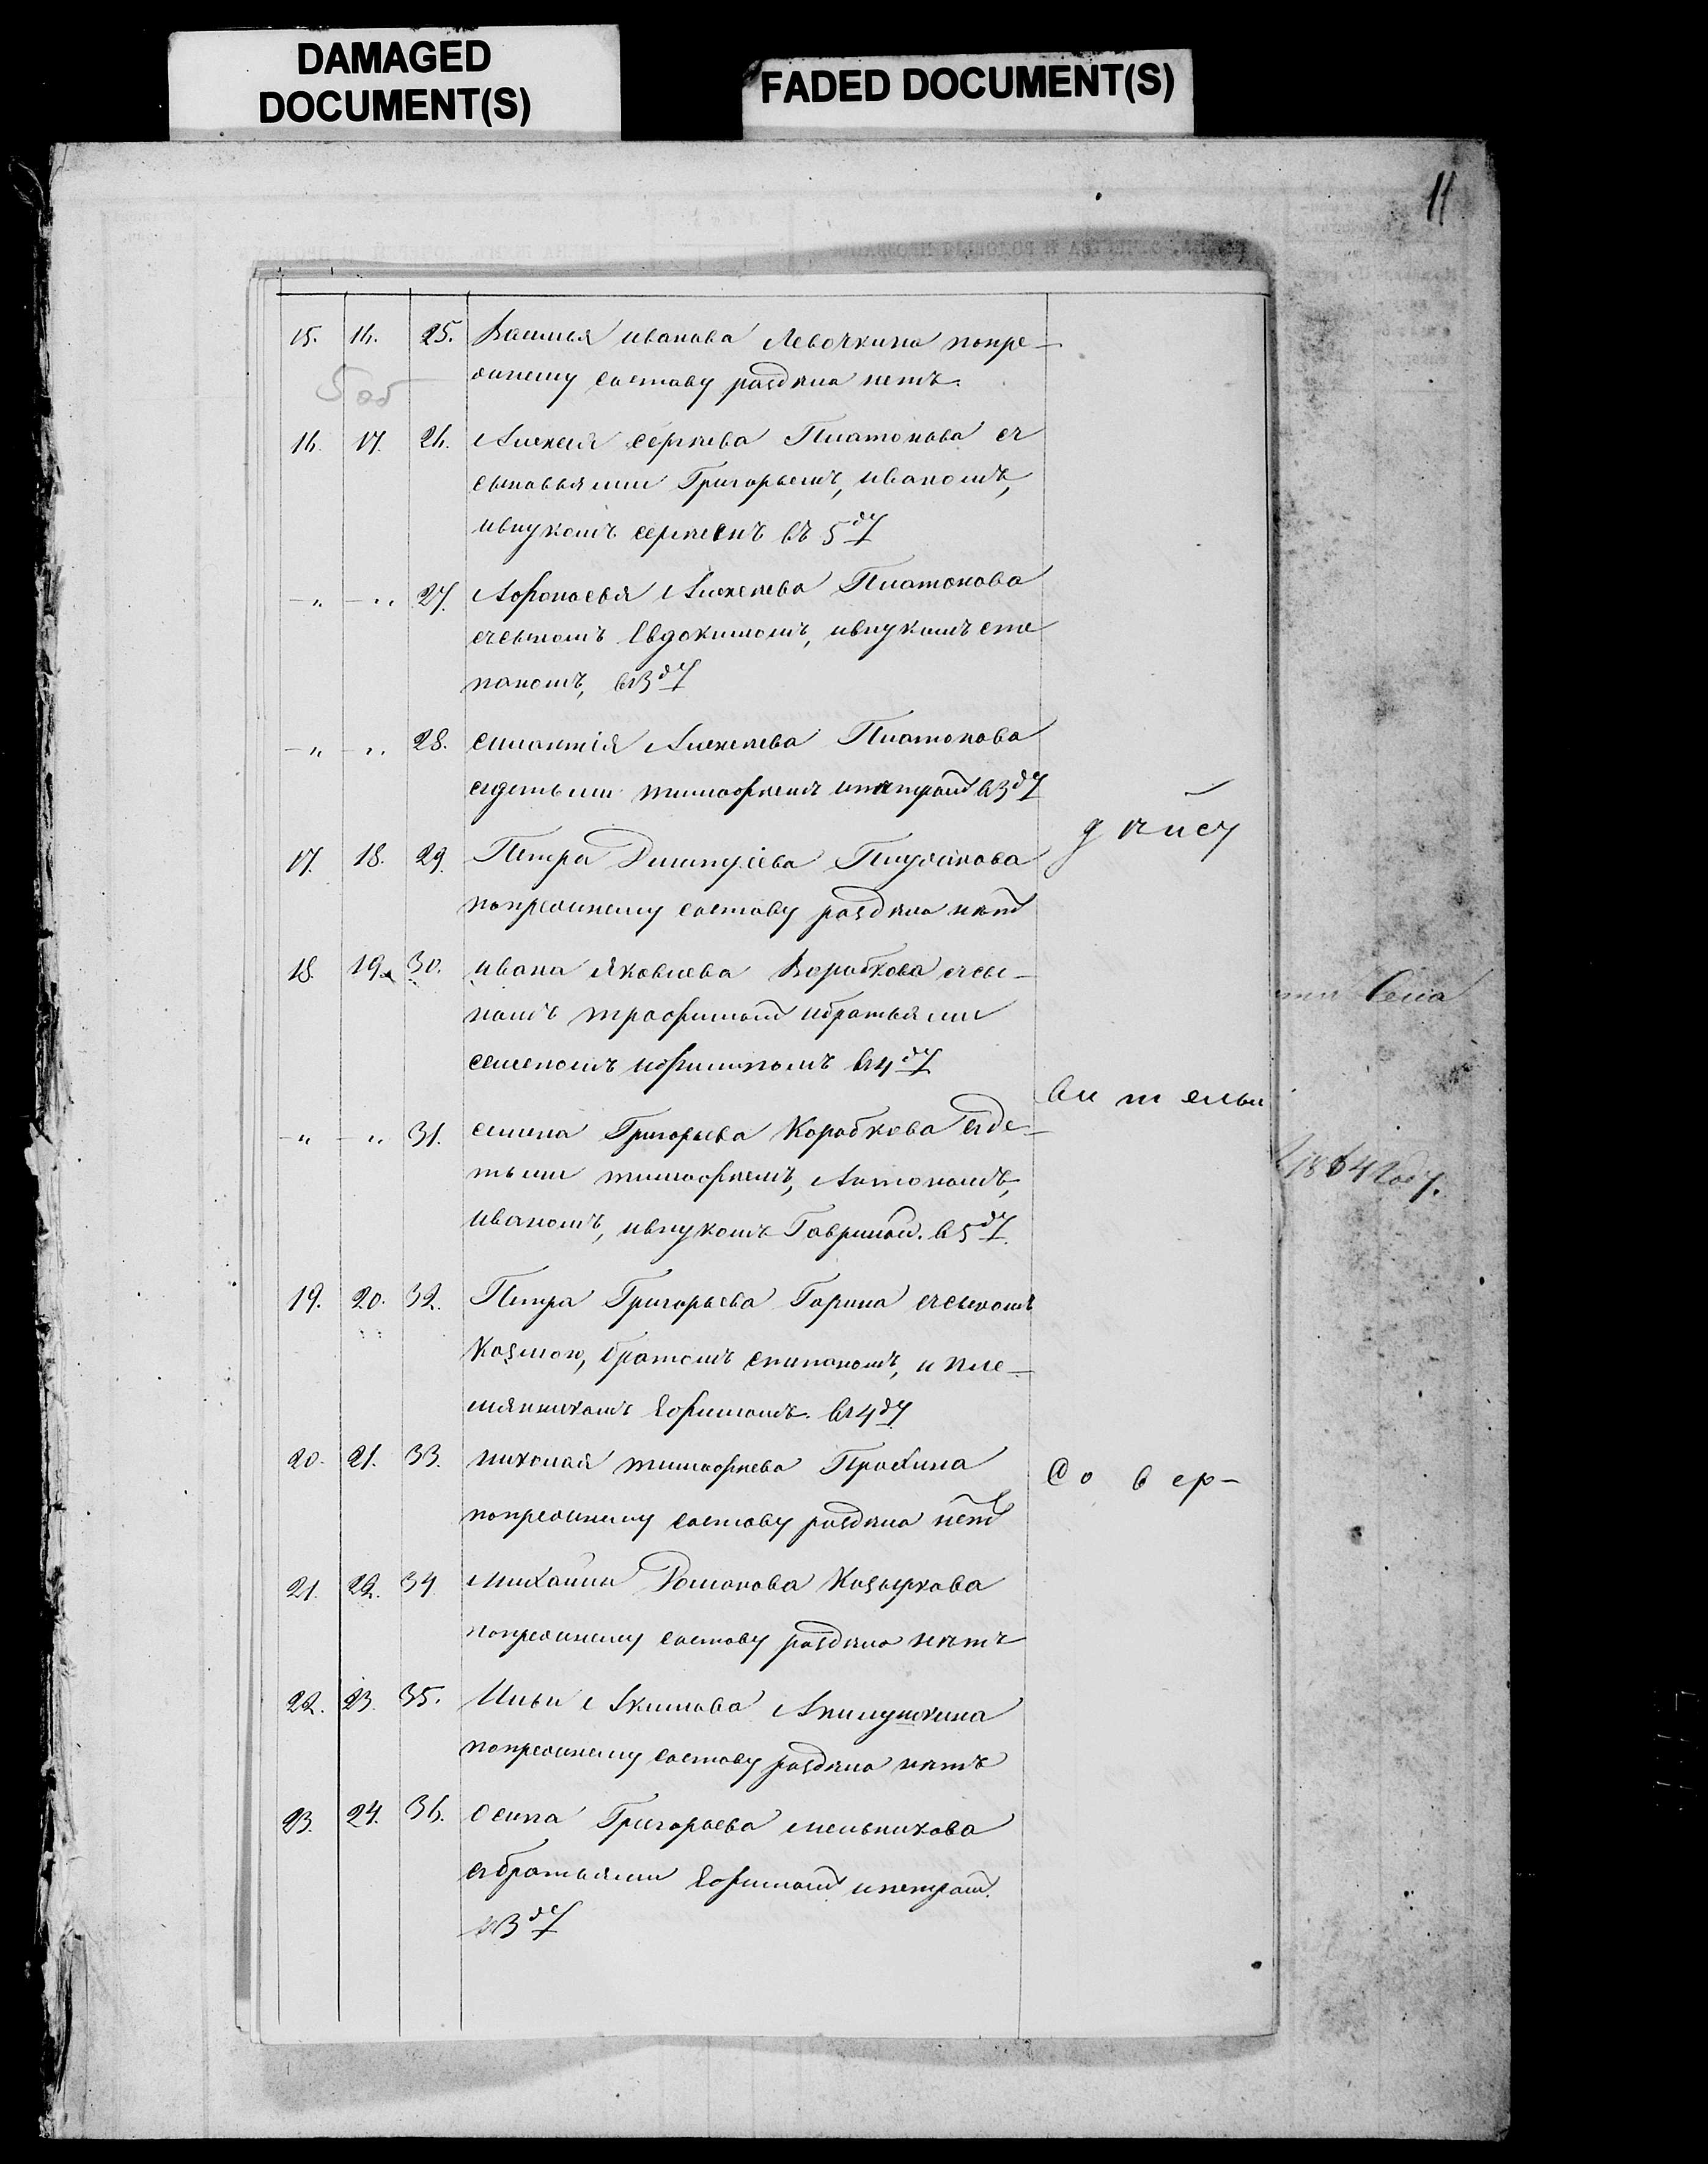 DAMAGED
DOCUMENT(S)
FADED DOCUMENT(S)
11
15. 16. 25. Василья иванова Левочкина попре-
жнему составу раздела нетъ.
5 об
16. 17. 26. Алексея сергѣева Платонова съ
сыновьями Григорьемъ, иваномъ,
ивнукомъ сергѣемъ въ 5 ду
-"- -"- 27. Афонасья Алексѣева Платонова
съсыномъ Евдокимомъ, ивнукомъ сте
паномъ, въ 3 ду
-"- -"- 28. силантія Алексѣева Платонова
сдетьми тимофѣемъ ипетромъ в 3 ду
17. 18. 29. Петра Дмитріева
попрежнему составу раздѣла нѣтъ
18. 19. 30. ивана Яковлева Коробкова съсы-
номъ трофимомъ ибратьями
семеномъ въ 4 ду
-"- -"- 31. семена Григорьева Коробкова сде-
тьми тимофѣемъ, Антономъ,
иваномъ, ивнукомъ Гавриломъ. в 5 ду.
19. 20. 32. Петра Григорьева Гарина съсыномъ
Козмою, братомъ степаномъ, и пле-
мянникомъ Ефимомъ. въ 4 ду
20. 21. 33. николая тимофѣева
попрежнему составу раздѣла нетъ
21. 22. 34. Михаила Романова Козыркова
попрежнему составу раздѣла нѣтъ
22. 23. 35. Ильи Акимова
попрежнему составу раздѣла нѣтъ
23. 24. 36. Осипа Григорьева мельникова
сбратьями Ефимомъ ипетромъ.
в 3 ду
ви тельн
Со вер-
Села
1864 Году.